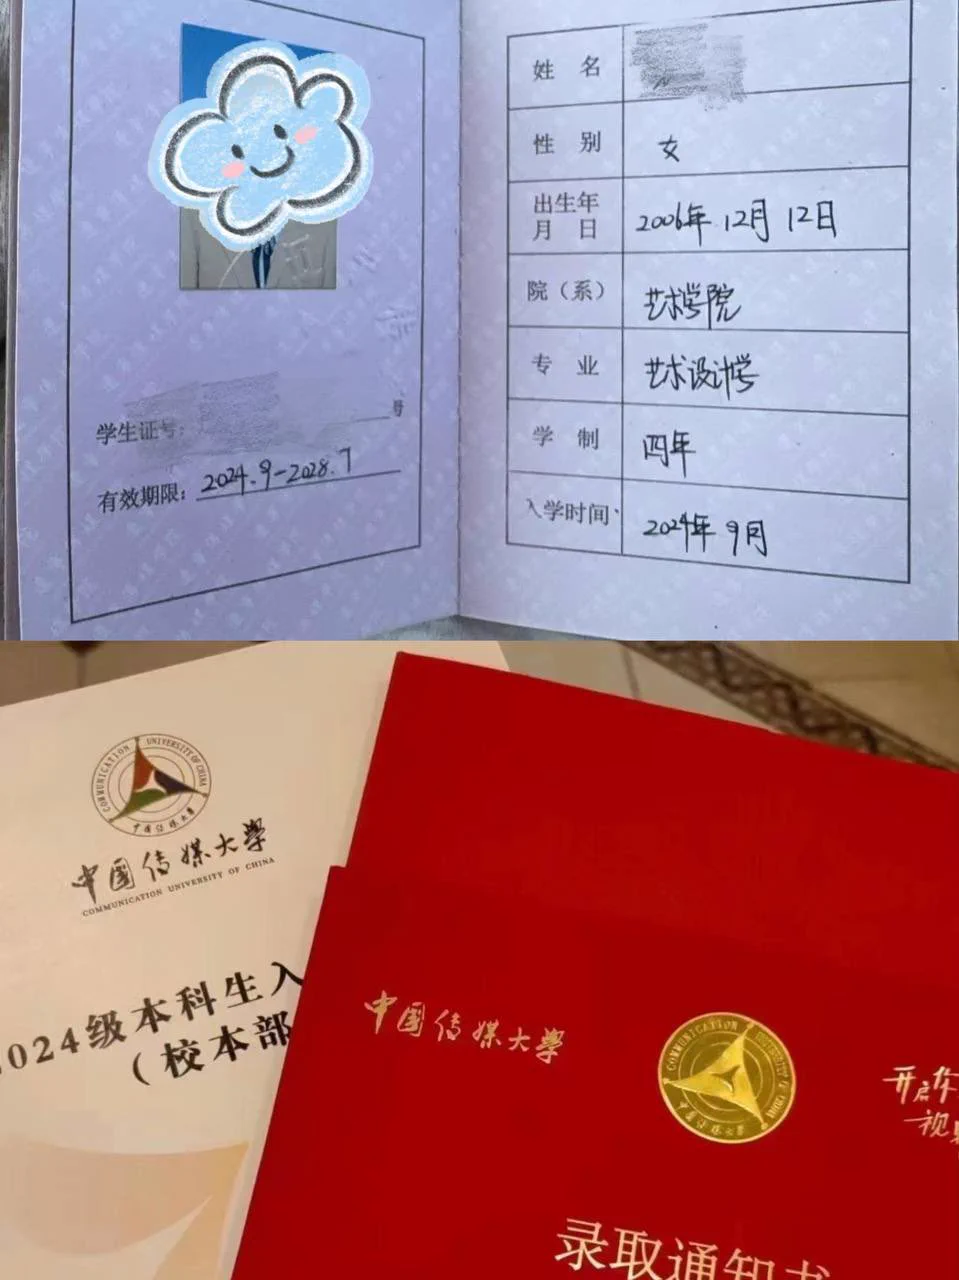 学生证号:
号
有效期限: 2024.9-2028.7
姓 名
性 别 女
出生年
月 日 2006年 12月 12日
院（系） 艺术学院
专 业 艺术设计学
学 制 四年
入学时间 2024年 9月
COMMUNICATION UNIVERSITY OF CHINA
中国传媒大学
中国传媒大学
COMMUNICATION UNIVERSITY OF CHINA
2024级本科生入
（校本部
中国传媒大学
COMMUNICATION UNIVERSITY OF CHINA
中国传媒大学
开启你
视界
录取通知书